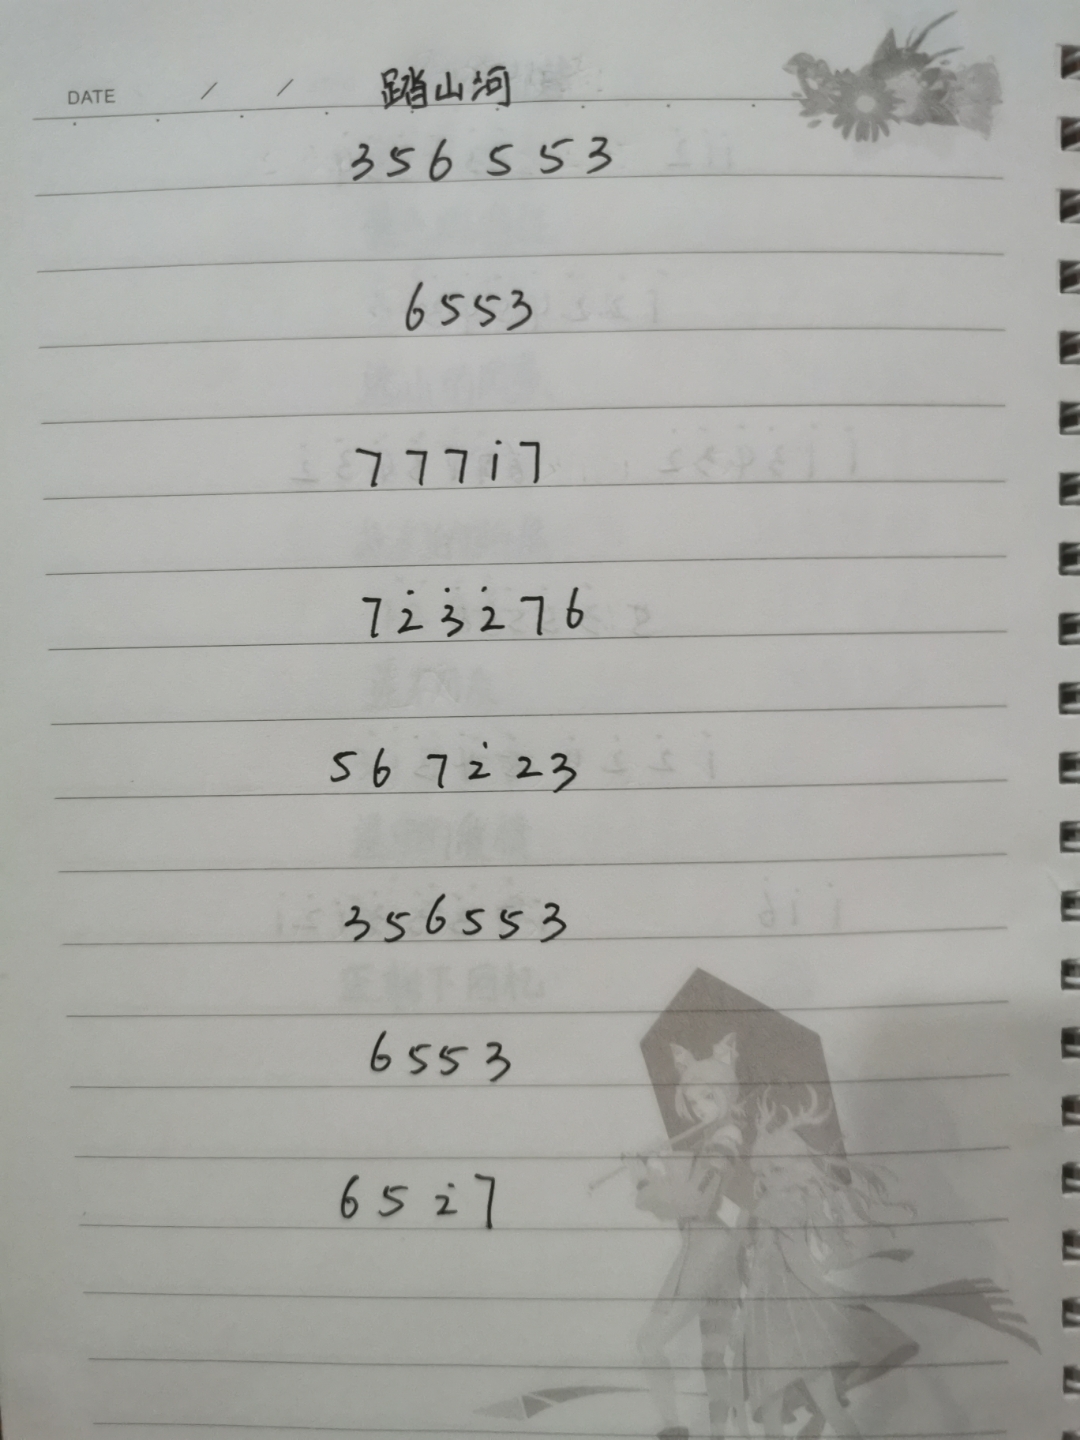 DATE / / 踏山河
356 5 53
6553
777i7
7 2̇ 3̇ 2̇ 7 6
5 6 7 2̇ 2 3
356553
6553
6 5 2̇ 7